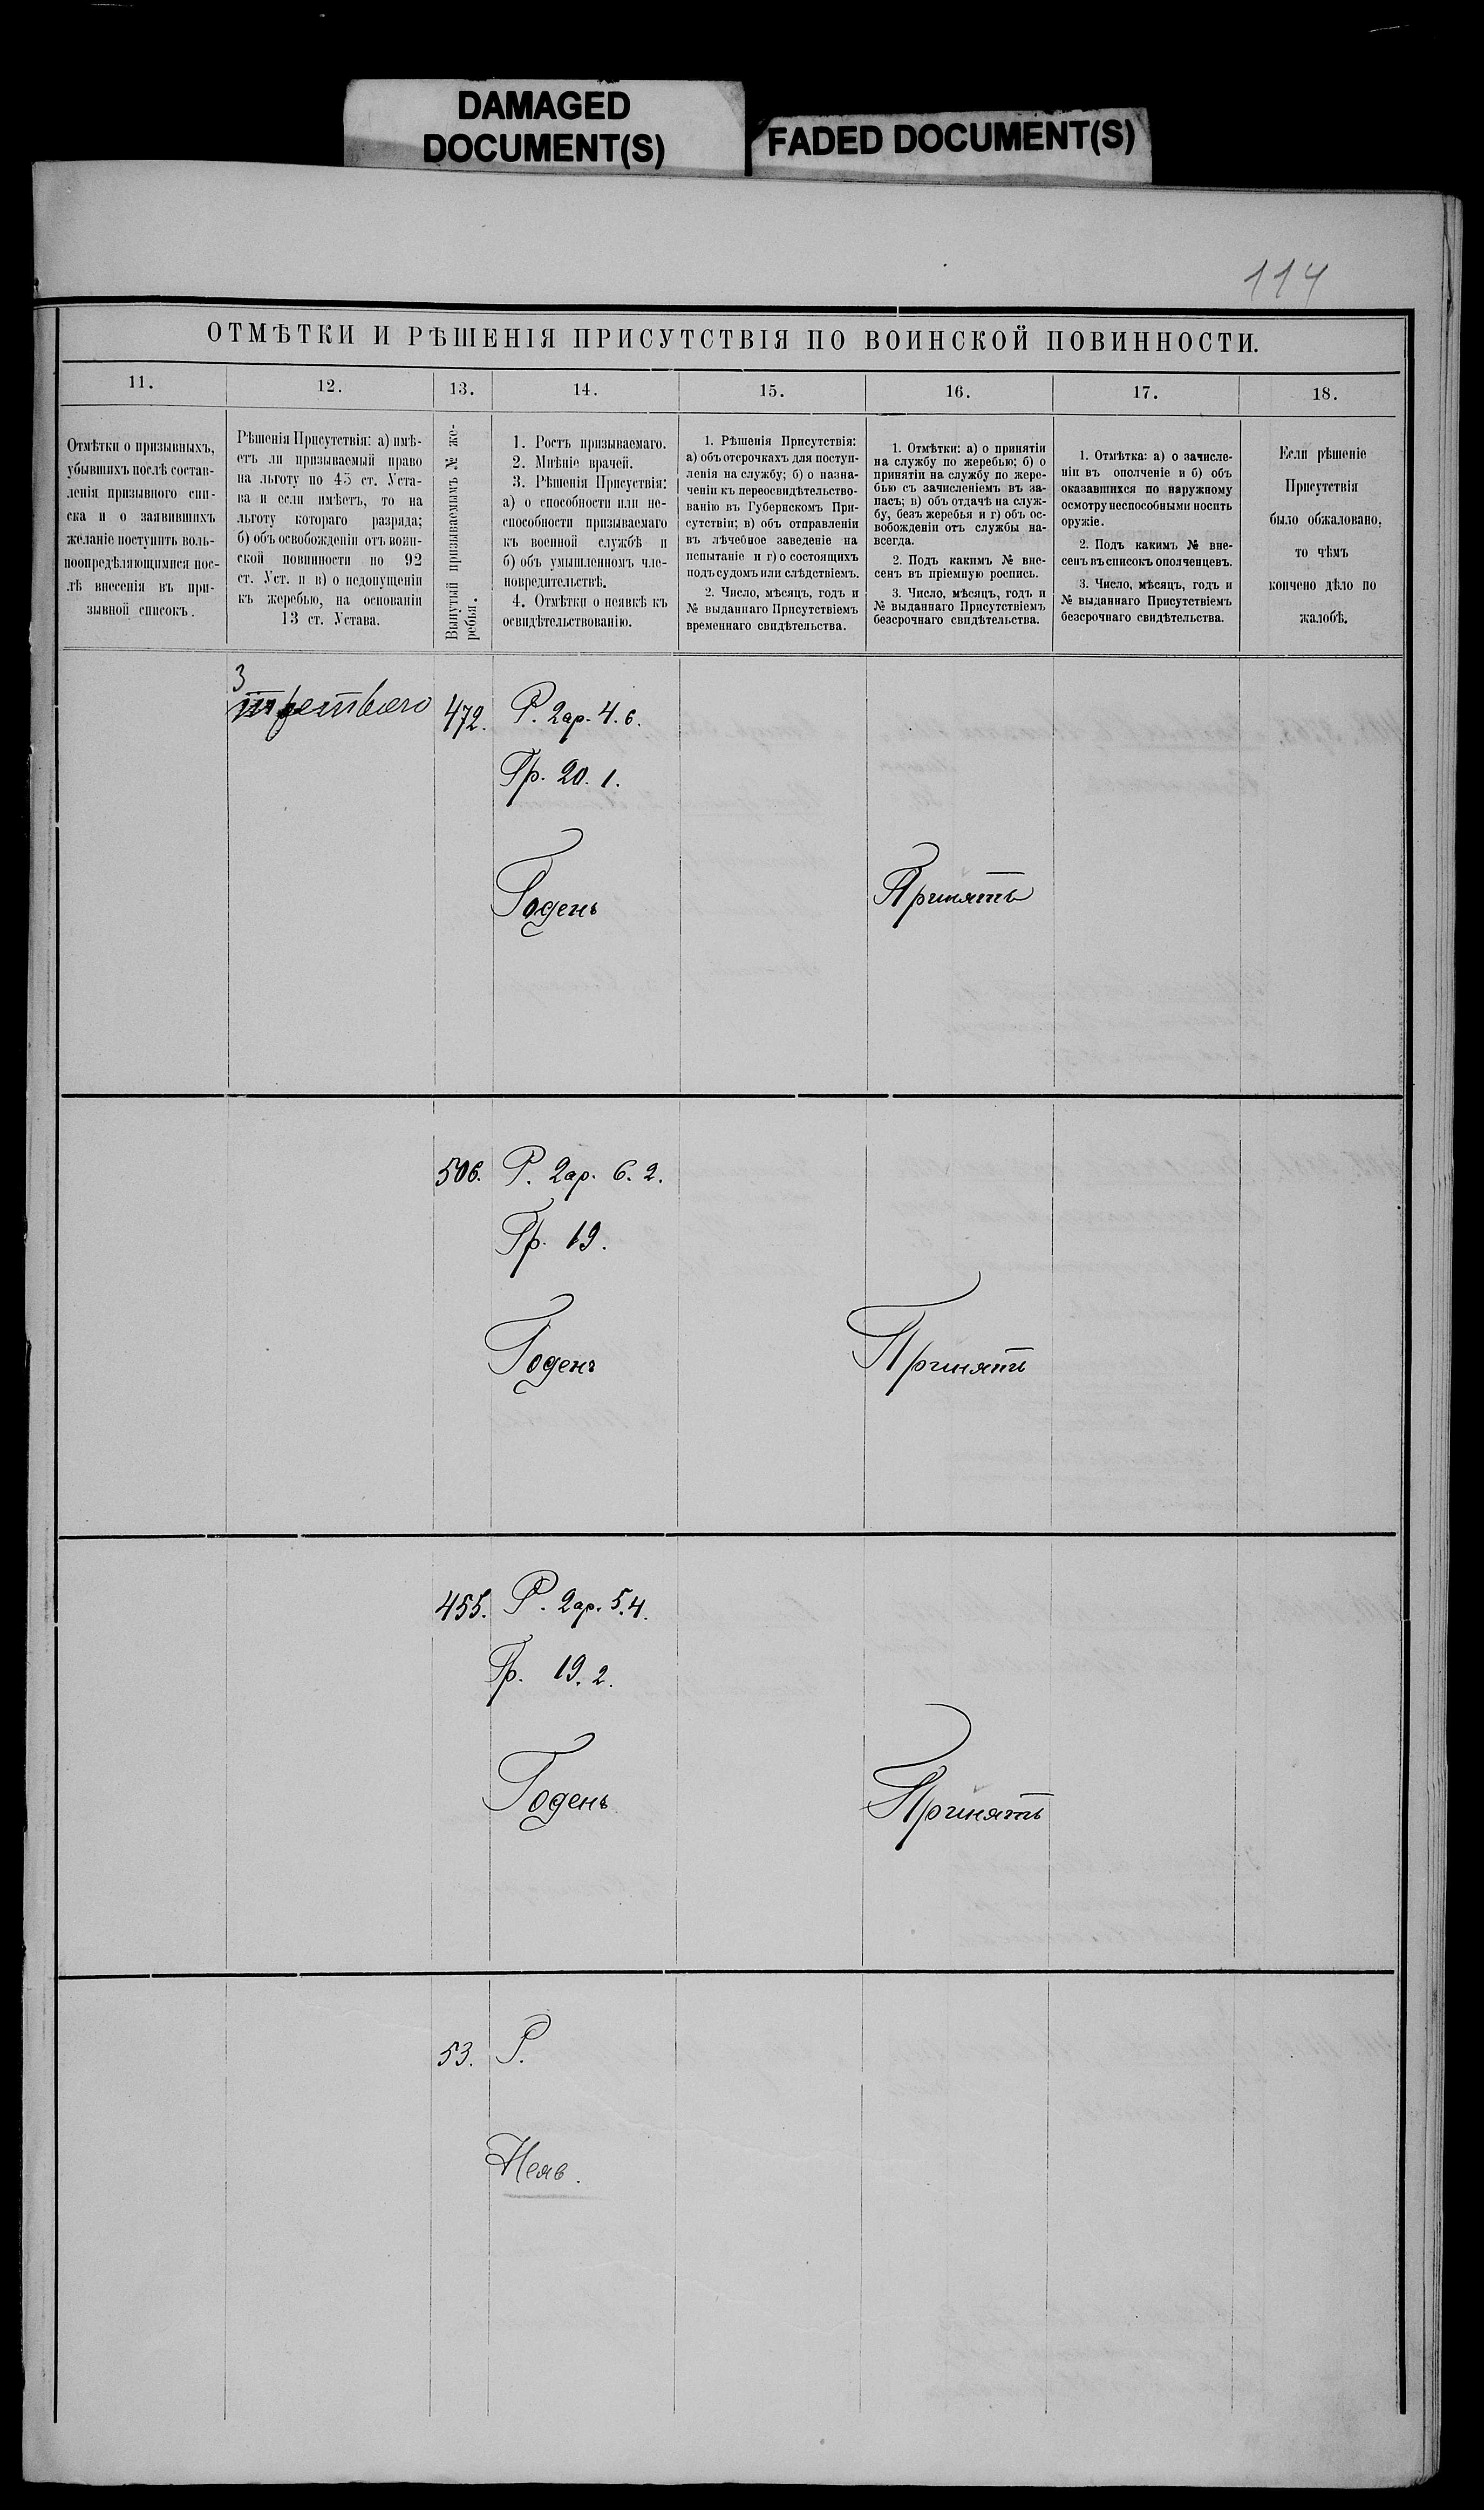 DAMAGED
DOCUMENT(S)
FADED DOCUMENT(S)
114
ОТМѢТКИ И РѢШЕНІЯ ПРИСУТСТВІЯ ПО ВОИНСКОЙ ПОВИННОСТИ.
11.
12.
13.
14.
15.
16.
17.
18.
Отмѣтки о призывныхъ,
убывшихъ послѣ состав-
ленія призывного спи-
ска и о заявившихъ
желаніе поступить воль-
ноопредѣляющимися пос-
лѣ внесенія въ при-
зывной списокъ.
Рѣшенія Присутствія: а) имѣ-
етъ ли призываемый право
на льготу по 45 ст. Уста-
ва и если имѣетъ, то на
льготу котораго разряда;
б) объ освобожденіи отъ воин-
ской повинности по 92
ст. Уст. и в) о недопущеніи
къ жеребью, на основаніи
13 ст. Устава.
Вынутый призываемымъ № же-
ребья.
1. Ростъ призываемаго.
2. Мнѣніе врачей.
3. Рѣшенія Присуствія:
а) о способности или не-
способности призываемаго
къ военной службѣ и
б) объ умышленномъ чле-
новредительствѣ.
4. Отмѣтки о неявкѣ къ
освидѣтельствованію.
1. Рѣшенія Присутствія:
а) объ отсрочкахъ для поступ-
ленія на службу; б) о назна-
ченіи къ переосвидѣтельство-
ванію въ Губернскомъ При-
сутствіи; в) объ отправленіи
въ лѣчебное заведеніе на
испытаніе и г) о состоящихъ
подъ судомъ или слѣдствіемъ.
2. Число, мѣсяцъ, годъ и
№ выданнаго Присутствіемъ
временнаго свидѣтельства.
1. Отмѣтки: а) о принятіи
на службу по жеребью; б) о
принятіи на службу по жере-
бью съ зачисленіемъ въ за-
пасъ; в) объ отдачѣ на служ-
бу, безъ жеребья и г) объ ос-
вобожденіи отъ службы на-
всегда.
2. Подъ какимъ № вне-
сенъ въ пріемную роспись.
3. Число, мѣсяцъ, годъ и
№ выданнаго Присутствіемъ
безсрочнаго свидѣтельства.
1. Отмѣтка: а) о зачисле-
ніи въ ополченіе и б) объ
оказавшихся по наружному
осмотру неспособными носить
оружіе.
2. Подъ какимъ № вне-
сенъ въ списокъ ополченцевъ.
3. Число, мѣсяцъ, годъ и
№ выданнаго Присутствіемъ
безсрочнаго свидѣтельства.
Если рѣшеніе
Присутствія
было обжаловано,
то чѣмъ
кончено дѣло по
жалобѣ.
3
третьяго
472.
Р. 2ар. 4. 6.
Гр. 20. 1.
Годенъ
Принять
506.
Р. 2ар. 6. 2.
Гр. 19.
Годенъ
Принять
455.
Р. 2ар. 5.4.
Гр. 19. 2.
Годенъ
Принять
53.
Р.
Неяв.